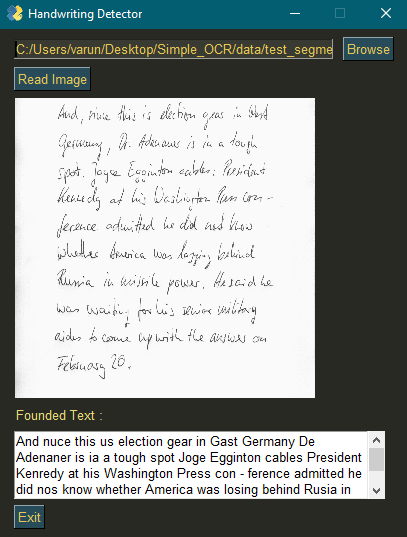 Handwriting Detector
C:/Users/varun/Desktop/Simple_OCR/data/test_segme
Browse
Read Image
And, since this is election year in West
Germany, Dr. Adenauer is in a tough
spot. Joyce Egginton cables: President
Kennedy at his Washington Press con -
ference admitted he did not know
whether America was lagging behind
Russia in missile power. He said he
was waiting for his senior military
aides to come up with the answer on
February 20.
Founded Text :
And nuce this us election gear in Gast Germany De
Adenaner is ia a tough spot Joge Egginton cables President
Kenredy at his Washington Press con - ference admitted he
did nos know whether America was losing behind Rusia in
Exit